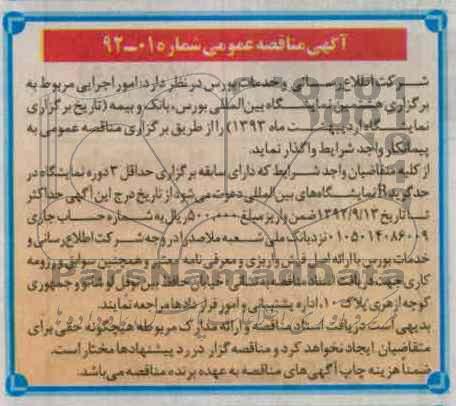 آگهی مناقصه عمومی شماره ۰۱-۹۲
شرکت اطلاع رسانی و خدمات بورس در نظر دارد: امور اجرایی مربوط به
برگزاری هشتمین نمایشگاه بین المللی بورس، بانک و بیمه (تاریخ برگزاری
نمایشگاه اردیبهشت ماه ۱۳۹۳) را از طریق برگزاری مناقصه عمومی به
پیمانکار واجد شرایط واگذار نماید.
از کلیه متقاضیان واجد شرایط که دارای سابقه برگزاری حداقل ۳ دوره نمایشگاه در
حد گرید B نمایشگاه های بین المللی دعوت می شود از تاریخ درج این آگهی حداکثر
تا تاریخ ۱۳۹۲/۹/۱۳ ضمن واریز مبلغ ۵۰۰,۰۰۰ ریال به شماره حساب جاری
۰۱۰۵۰۱۴۰۸۶۰۰۹ نزد بانک ملی شعبه ملاصدرا در وجه شرکت اطلاع رسانی و
خدمات بورس با ارائه اصل فیش واریزی و معرفی نامه معتبر و همچنین سوابق و رزومه
کاری جهت دریافت اسناد مناقصه به نشانی: خیابان حافظ بین نوفل لوشاتو و جمهوری
کوچه ازهری پلاک ۱۰، اداره پشتیبانی و امور قراردادها مراجعه نمایند.
بدیهی است دریافت اسناد مناقصه و ارائه مدارک مربوطه هیچگونه حقی برای
متقاضیان ایجاد نخواهد کرد و مناقصه گزار در رد پیشنهادها مختار است.
ضمناً هزینه چاپ آگهی های مناقصه به عهده برنده مناقصه می باشد.
ParsNamadData